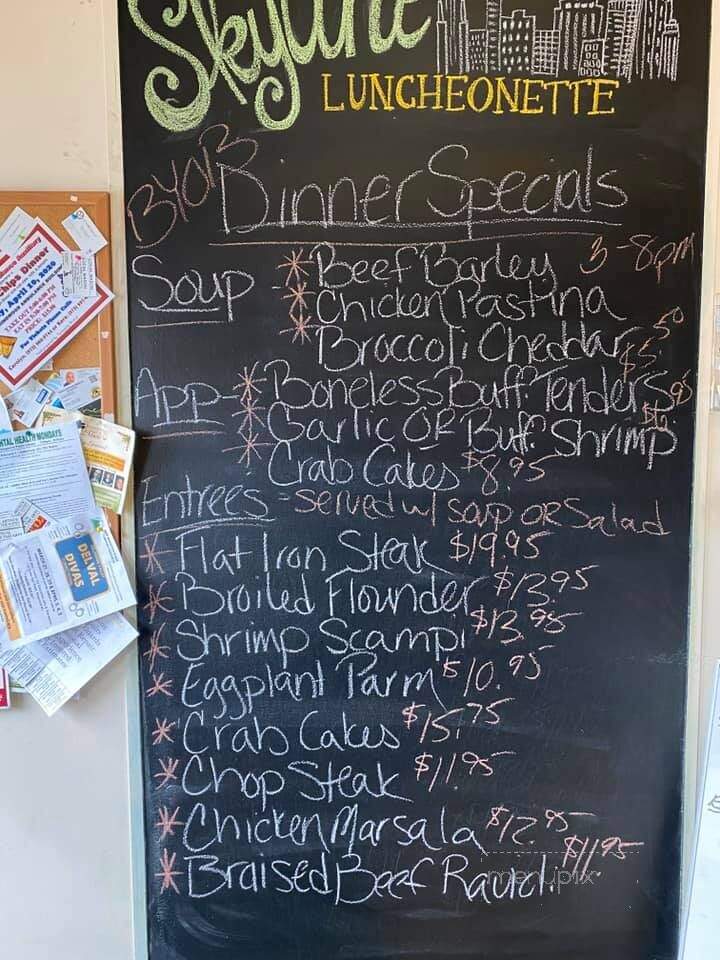 Skyline
LUNCHEONETTE
BYOB
Dinner Specials
3-8pm
Soup
* Beef Barley
* Chicken Pastina
* Broccoli Cheddar $5.50
App-
* Boneless Buff. Tenders
* Garlic OR Buff. Shrimp
* Crab Cakes $8.95
Entrees - served w/ soup OR Salad
* Flat Iron Steak $19.95
* Broiled Flounder $13.95
* Shrimp Scampi $13.95
* Eggplant Parm $10.95
* Crab Cakes $15.75
* Chop Steak $11.95
* Chicken Marsala $12.95
* Braised Beef Ravioli $11.95
menupix
DELVAL
DIVAS
NTAL HEALTH MONDAYS
hips Dinner
y, April 10, 2020